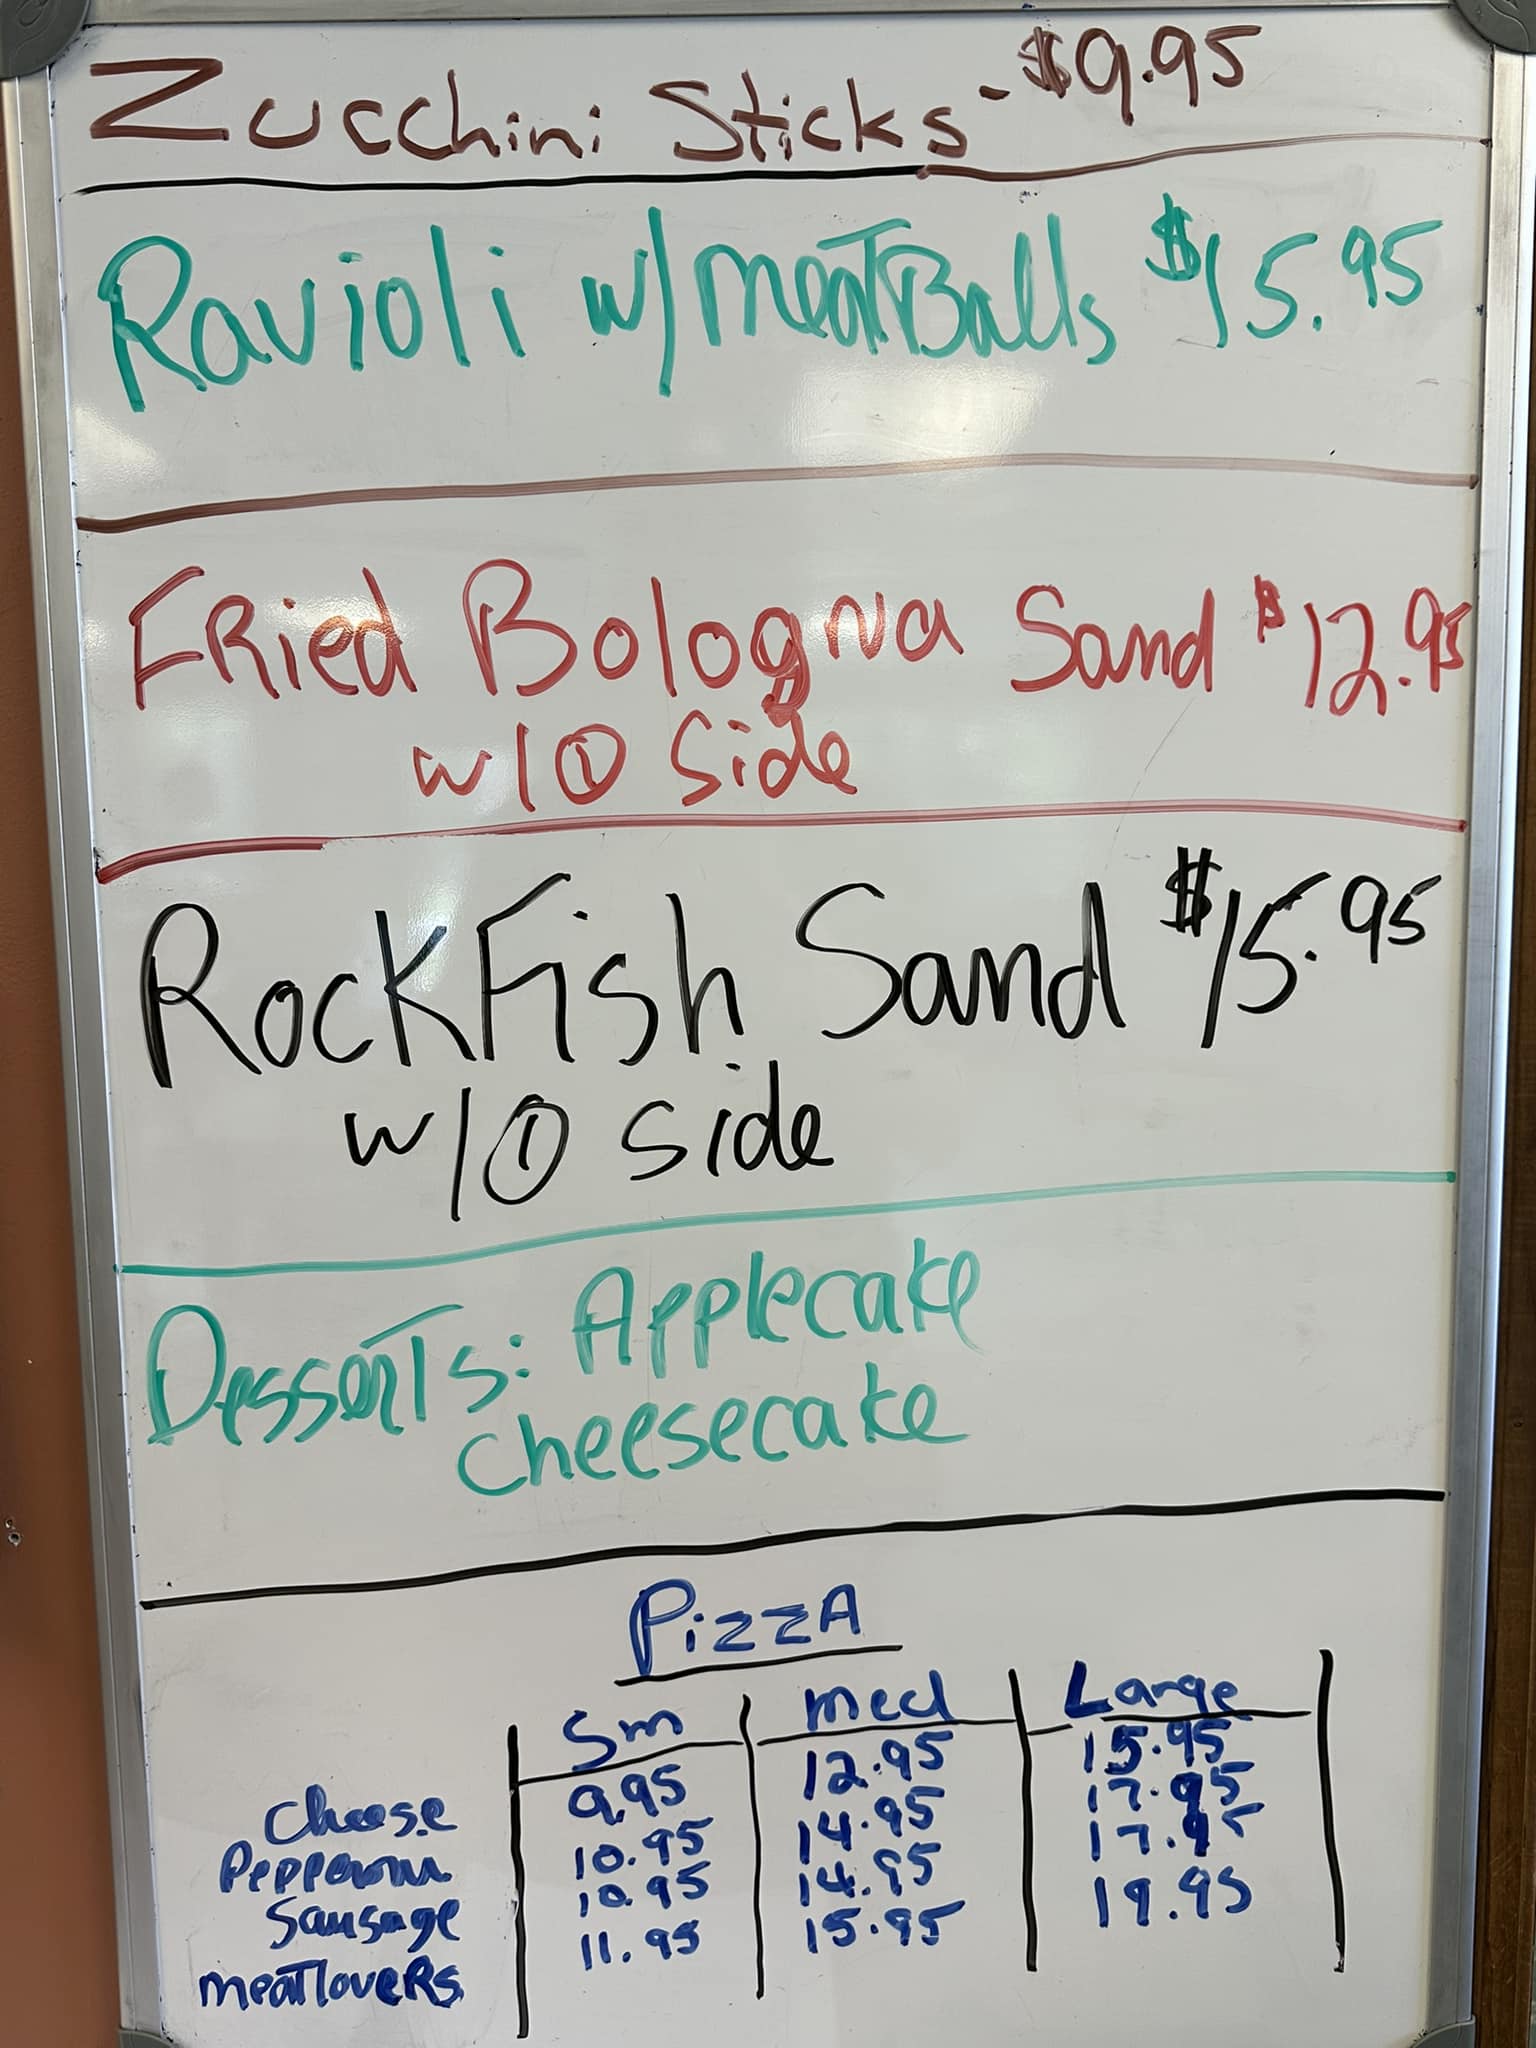 Zucchini Sticks - $9.95
Ravioli w/ meatBalls $15.95
FRied Bologna Sand $12.95
w/ ① Side
RockFish Sand $15.95
w/ ① side
Desserts: Applecake
cheesecake
PizzA
Sm med Large
cheese 9.95 12.95 15.95
Pepperoni 10.95 14.95 17.95
Sausage 10.95 14.95 17.95
meatloveRs 11.95 15.95 19.95